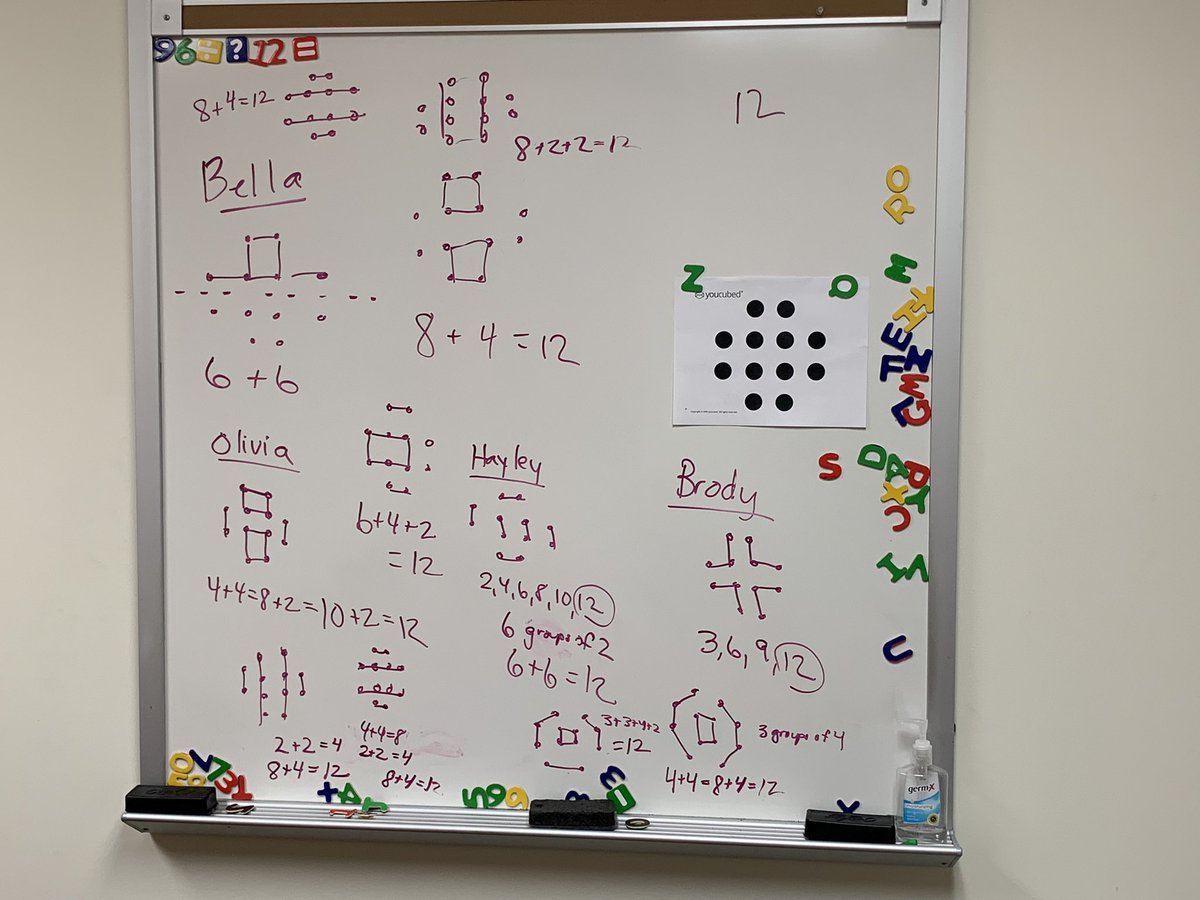 96÷?12=
8+4=12
8+2+2=12
12
Bella
6+6
8+4=12
youcubed
Olivia
4+4=8+2=10+2=12
6+4+2
=12
Hayley
2,4,6,8,10,12
6 groups of 2
6+6=12
Brody
3,6,9,12
2+2=4
8+4=12
4+4=8
2+2=4
8+4=12
3+3+4+2
=12
3 groups of 4
4+4=8+4=12
Z
O
O
R
M
S
U
germX